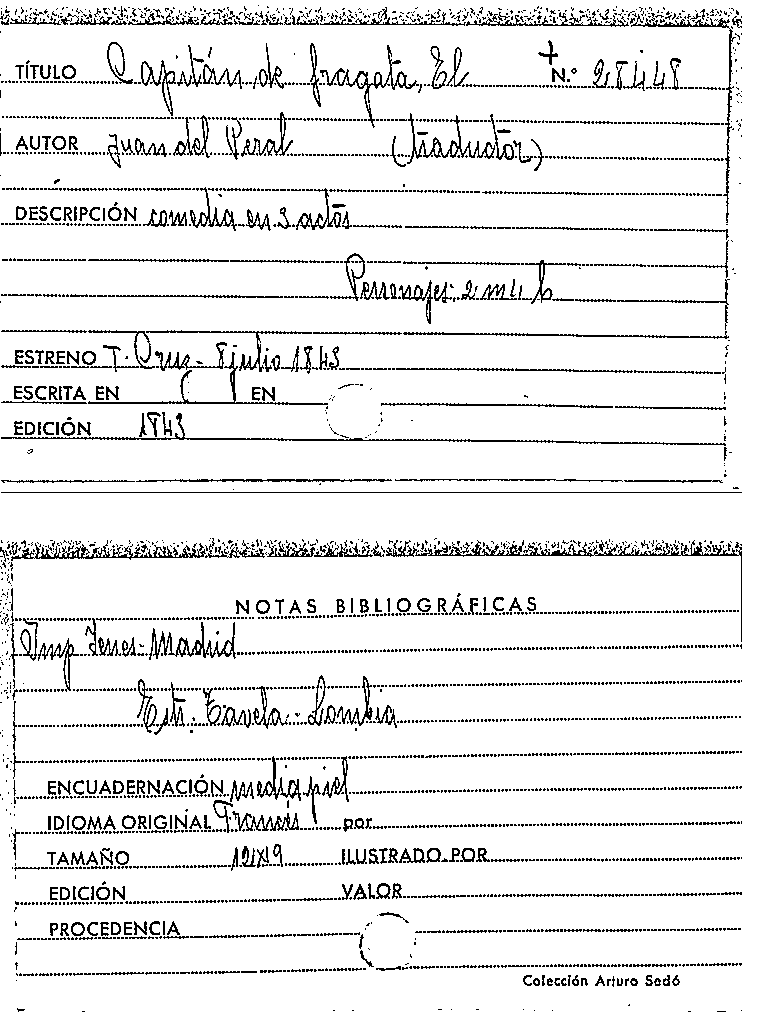 TÍTULO Capitán de fragata, El + N.º 28448
AUTOR Juan del Peral (traductor)
DESCRIPCIÓN comedia en 3 actos
Personajes: 2 m 4 h
ESTRENO T. Cruz - 8 julio 1843
ESCRITA EN EN
EDICIÓN 1843
NOTAS BIBLIOGRÁFICAS
Imp Yenes - Madrid
Estr. Tavela - Lombia
ENCUADERNACIÓN media piel
IDIOMA ORIGINAL Francés por
TAMAÑO 12X19 ILUSTRADO POR
EDICIÓN VALOR
PROCEDENCIA
Colección Arturo Sedó